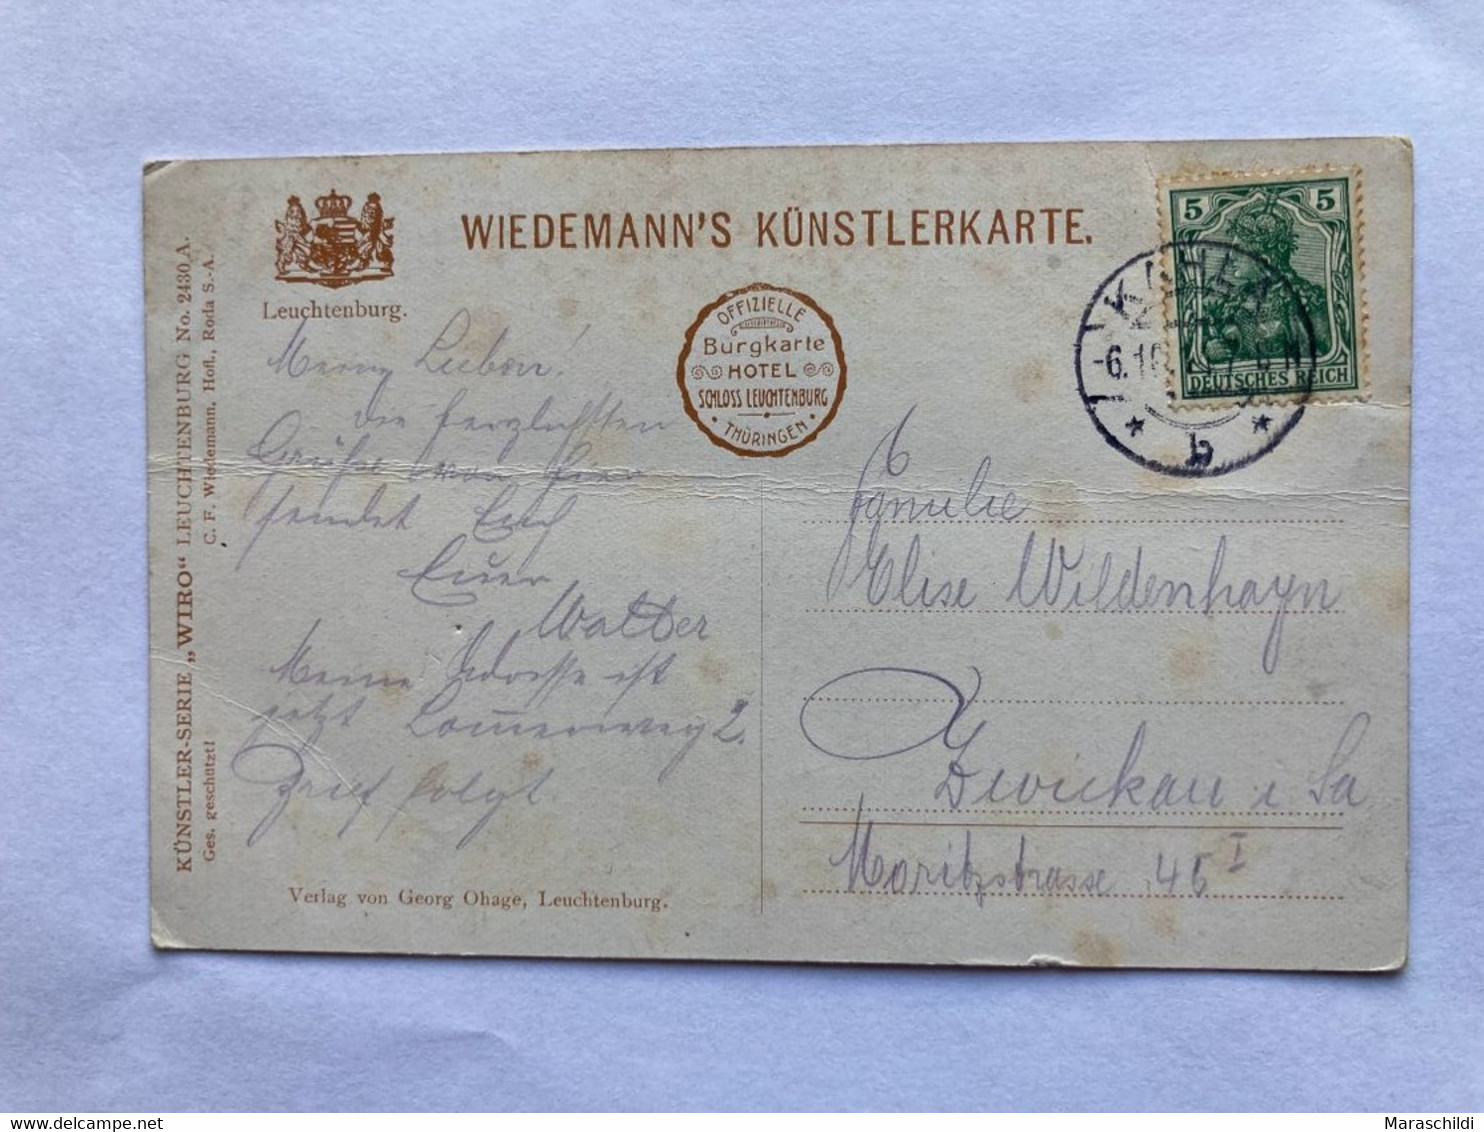 WIEDEMANN'S KÜNSTLERKARTE.
Leuchtenburg.
OFFIZIELLE
Burgkarte
HOTEL
SCHLOSS LEUCHTENBURG
THÜRINGEN
5 5
DEUTSCHES REICH
KAHLA
-6.10.
b
Meine Lieben!
Die herzlichsten
Grüße von hier
sendet Euch
Euer
Walter
Meine Adresse ist
jetzt 2.
Brief folgt.
Familie
Elise Wildenhayn
Zwickau i Sa
Moritzstrasse 45 I
Verlag von Georg Ohage, Leuchtenburg.
KÜNSTLER-SERIE „WIRO“ LEUCHTENBURG No. 2430 A.
Ges. geschützt! C. F. Wiedemann, Hofl., Roda S.-A.
Maraschildi